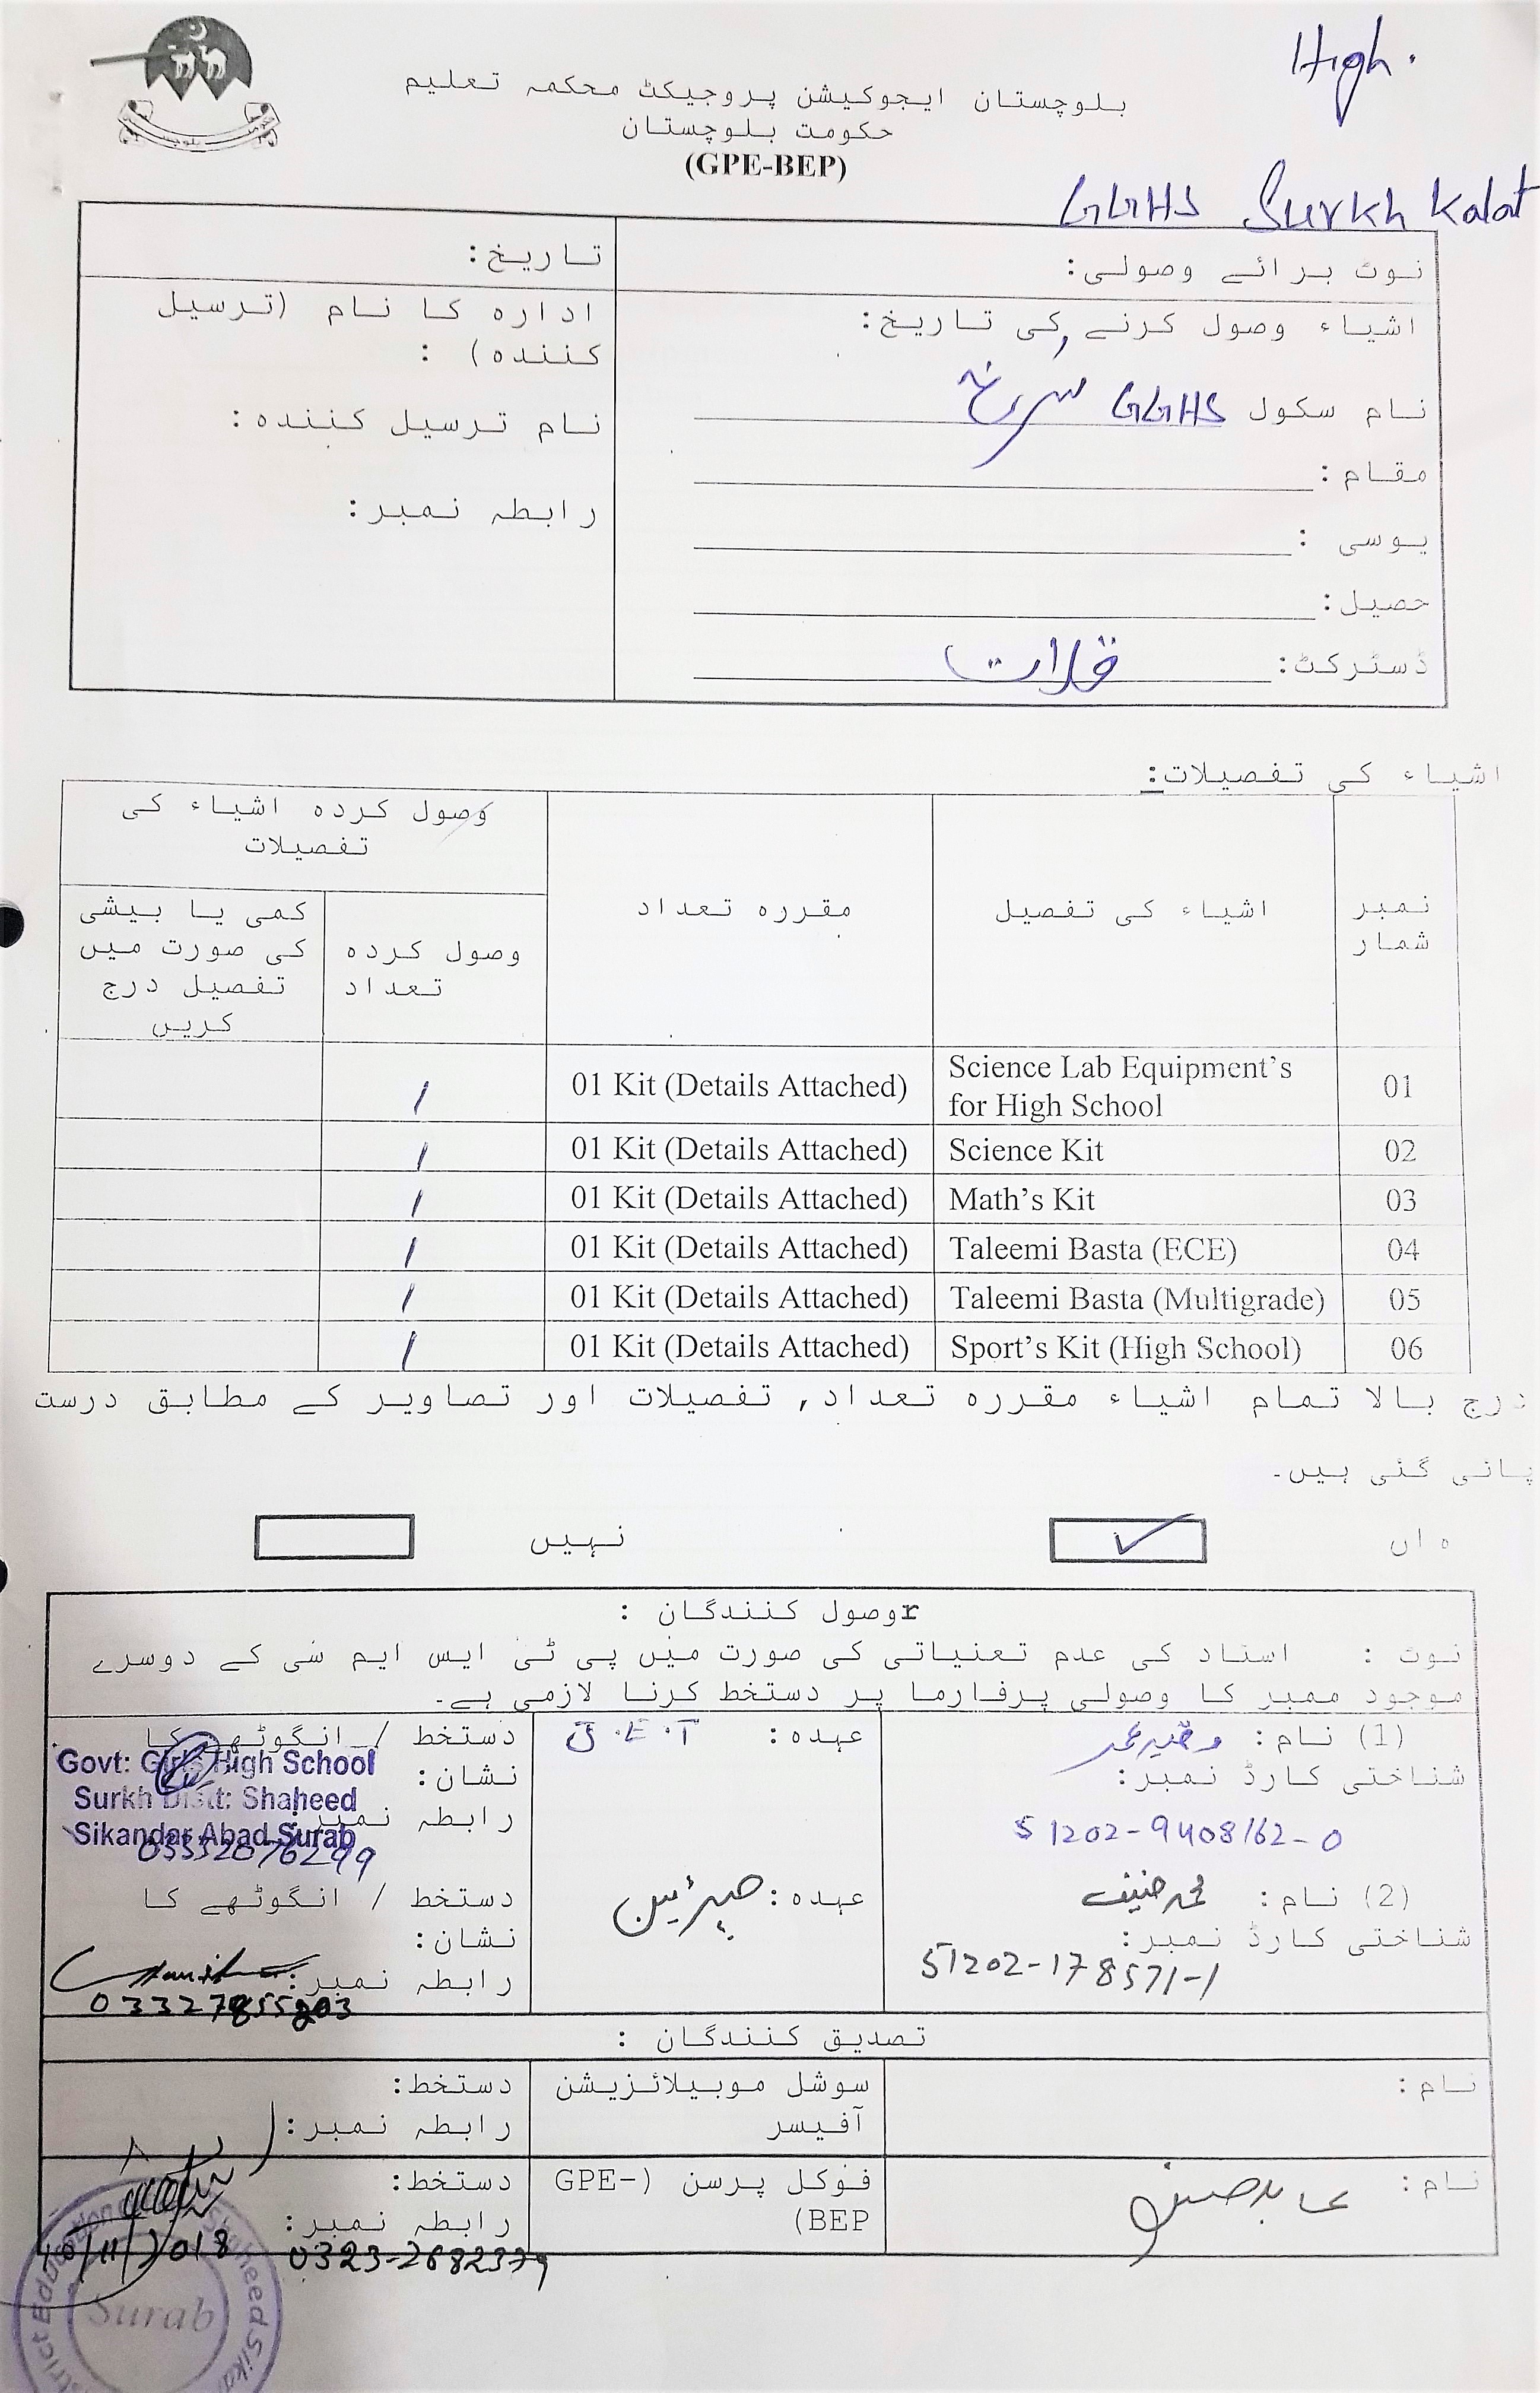 High.
بلوچستان ایجوکیشن پروجیکٹ محکمہ تعلیم
حکومت بلوچستان
(GPE-BEP)
GGHS Surkh Kalat
نوٹ برائے وصولی:
تاریخ:
اشیاء وصول کرنے کی تاریخ:
نام سکول GGHS سرخ
مقام:
یوسی :
حصیل:
ڈسٹرکٹ: قلات
ادارہ کا نام (ترسیل
کنندہ) :
نام ترسیل کنندہ:
رابطہ نمبر:
اشیاء کی تفصیلات:
نمبر شمار
اشیاء کی تفصیل
مقررہ تعداد
وصول کردہ اشیاء کی تفصیلات
وصول کردہ تعداد
کمی یا بیشی کی صورت میں تفصیل درج کریں
01 Science Lab Equipment's for High School 01 Kit (Details Attached) 1
02 Science Kit 01 Kit (Details Attached) 1
03 Math's Kit 01 Kit (Details Attached) 1
04 Taleemi Basta (ECE) 01 Kit (Details Attached) 1
05 Taleemi Basta (Multigrade) 01 Kit (Details Attached) 1
06 Sport's Kit (High School) 01 Kit (Details Attached) 1
درج بالا تمام اشیاء مقررہ تعداد, تفصیلات اور تصاویر کے مطابق درست
پائی گئی ہیں۔
ہاں ✓
نہیں
rوصول کنندگان :
نوٹ : استاد کی عدم تعنیاتی کی صورت میں پی ٹی ایس ایم سی کے دوسرے
موجود ممبر کا وصولی پرفارما پر دستخط کرنا لازمی ہے۔
(1) نام:
شناختی کارڈ نمبر:
51202-9408162-0
عہدہ: J.E.T
دستخط / انگوٹھے کا
نشان:
رابطہ نمبر:
Govt: Girls High School
Surkh Distt: Shaheed
Sikandar Abad Surab
03332076299
(2) نام: محمد حنیف
شناختی کارڈ نمبر:
51202-178571-1
عہدہ: چیئرمین
دستخط / انگوٹھے کا
نشان:
رابطہ نمبر:
تصدیق کنندگان :
نام:
سوشل موبیلائزیشن
آفیسر
دستخط:
رابطہ نمبر:
نام:
فوکل پرسن (GPE-
BEP)
دستخط:
رابطہ نمبر:
0323-2682379
Surab